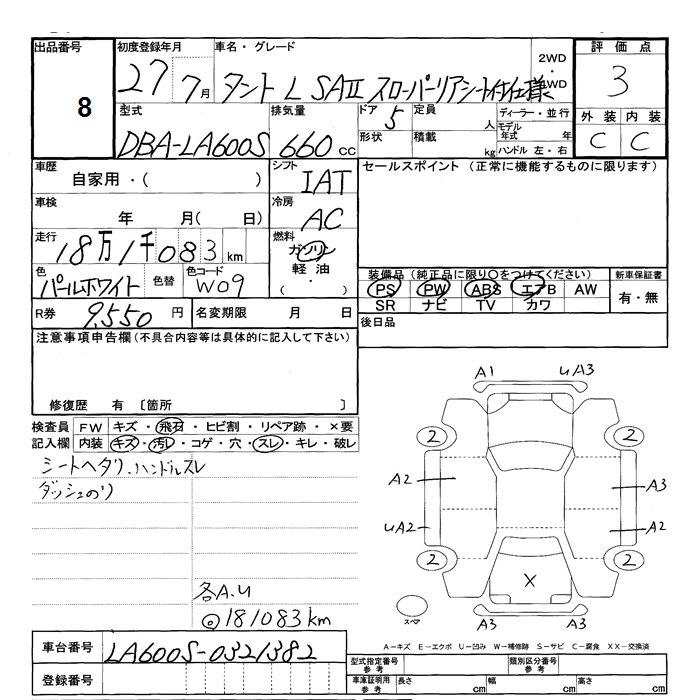 出品番号 8
初度登録年月 27 7月
車名・グレード タント L SAⅡ スローパーリアシート付仕様
2WD ・ 4WD
評価点 3
外装 C 内装 C
型式 DBA-LA600S
排気量 660 cc
ドア 5
形状
定員 人
積載 kg
ディーラー・並行
モデル年式 年
ハンドル 左・右
車歴 自家用・( )
シフト IAT
セールスポイント (正常に機能するものに限ります)
車検 年 月( 日)
冷房 AC
走行 18万1千083 km
燃料 ガソリン
軽油
( ・ )
色 パールホワイト 色替
色コード W09
装備品 (純正品に限り○をつけてください)
PS PW ABS エアB AW
SR ナビ TV カワ
新車保証書 有・無
R券 9,550 円
名変期限 月 日
後日品
注意事項申告欄(不具合内容等は具体的に記入して下さい)
修復歴 有 〔箇所 〕
検査員記入欄
FW キズ・飛石・ヒビ割・リペア跡・×要
内装 キズ・汚レ・コゲ・穴・スレ・キレ・破レ
シートヘタリ、ハンドルスレ
ダッシュのり
各A.U
◎181083km
A1 UA3
2 2
A2 A3
UA2 A2
2 2
X
スペア
A3 A3
A=キズ E=エクボ U=凹み W=補修跡 S=サビ C=腐食 XX=交換済
車台番号 LA600S-0321382
登録番号
型式指定番号 参考
類別区分番号 参考
車庫証明用 参考 長さ cm 幅 cm 高さ cm